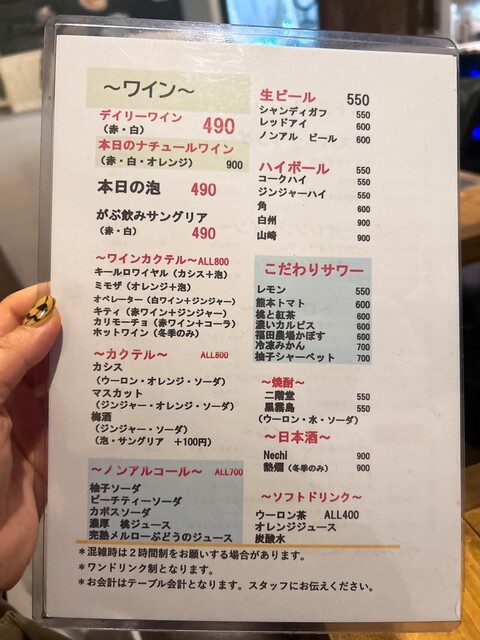 ～ワイン～
デイリーワイン
（赤・白） 490
本日のナチュールワイン
（赤・白・オレンジ） 900
本日の泡 490
がぶ飲みサングリア
（赤・白） 490
～ワインカクテル～ALL800
キールロワイヤル（カシス＋泡）
ミモザ（オレンジ＋泡）
オペレーター（白ワイン＋ジンジャー）
キティ（赤ワイン＋ジンジャー）
カリモーチョ（赤ワイン＋コーラ）
ホットワイン（冬季のみ）
～カクテル～ ALL800
カシス
（ウーロン・オレンジ・ソーダ）
マスカット
（ジンジャー・オレンジ・ソーダ）
梅酒
（ジンジャー・ソーダ）
（泡・サングリア ＋100円）
～ノンアルコール～ ALL700
柚子ソーダ
ピーチティーソーダ
カボスソーダ
濃厚 桃ジュース
完熟メルローぶどうのジュース
生ビール 550
シャンディガフ 550
レッドアイ 600
ノンアル ビール 600
ハイボール 550
コークハイ 550
ジンジャーハイ 550
角 600
白州 900
山崎 900
こだわりサワー
レモン 550
熊本トマト 600
桃と紅茶 600
濃いカルピス 600
福田農場かぼす 600
冷凍みかん 700
柚子シャーベット 700
～焼酎～
二階堂 550
黒霧島 550
（ウーロン・水・ソーダ）
～日本酒～
Nechi 900
熱燗（冬季のみ） 900
～ソフトドリンク～
ウーロン茶 ALL400
オレンジジュース
炭酸水
＊混雑時は２時間制をお願いする場合があります。
＊ワンドリンク制となります。
＊お会計はテーブル会計となります。スタッフにお伝えください。